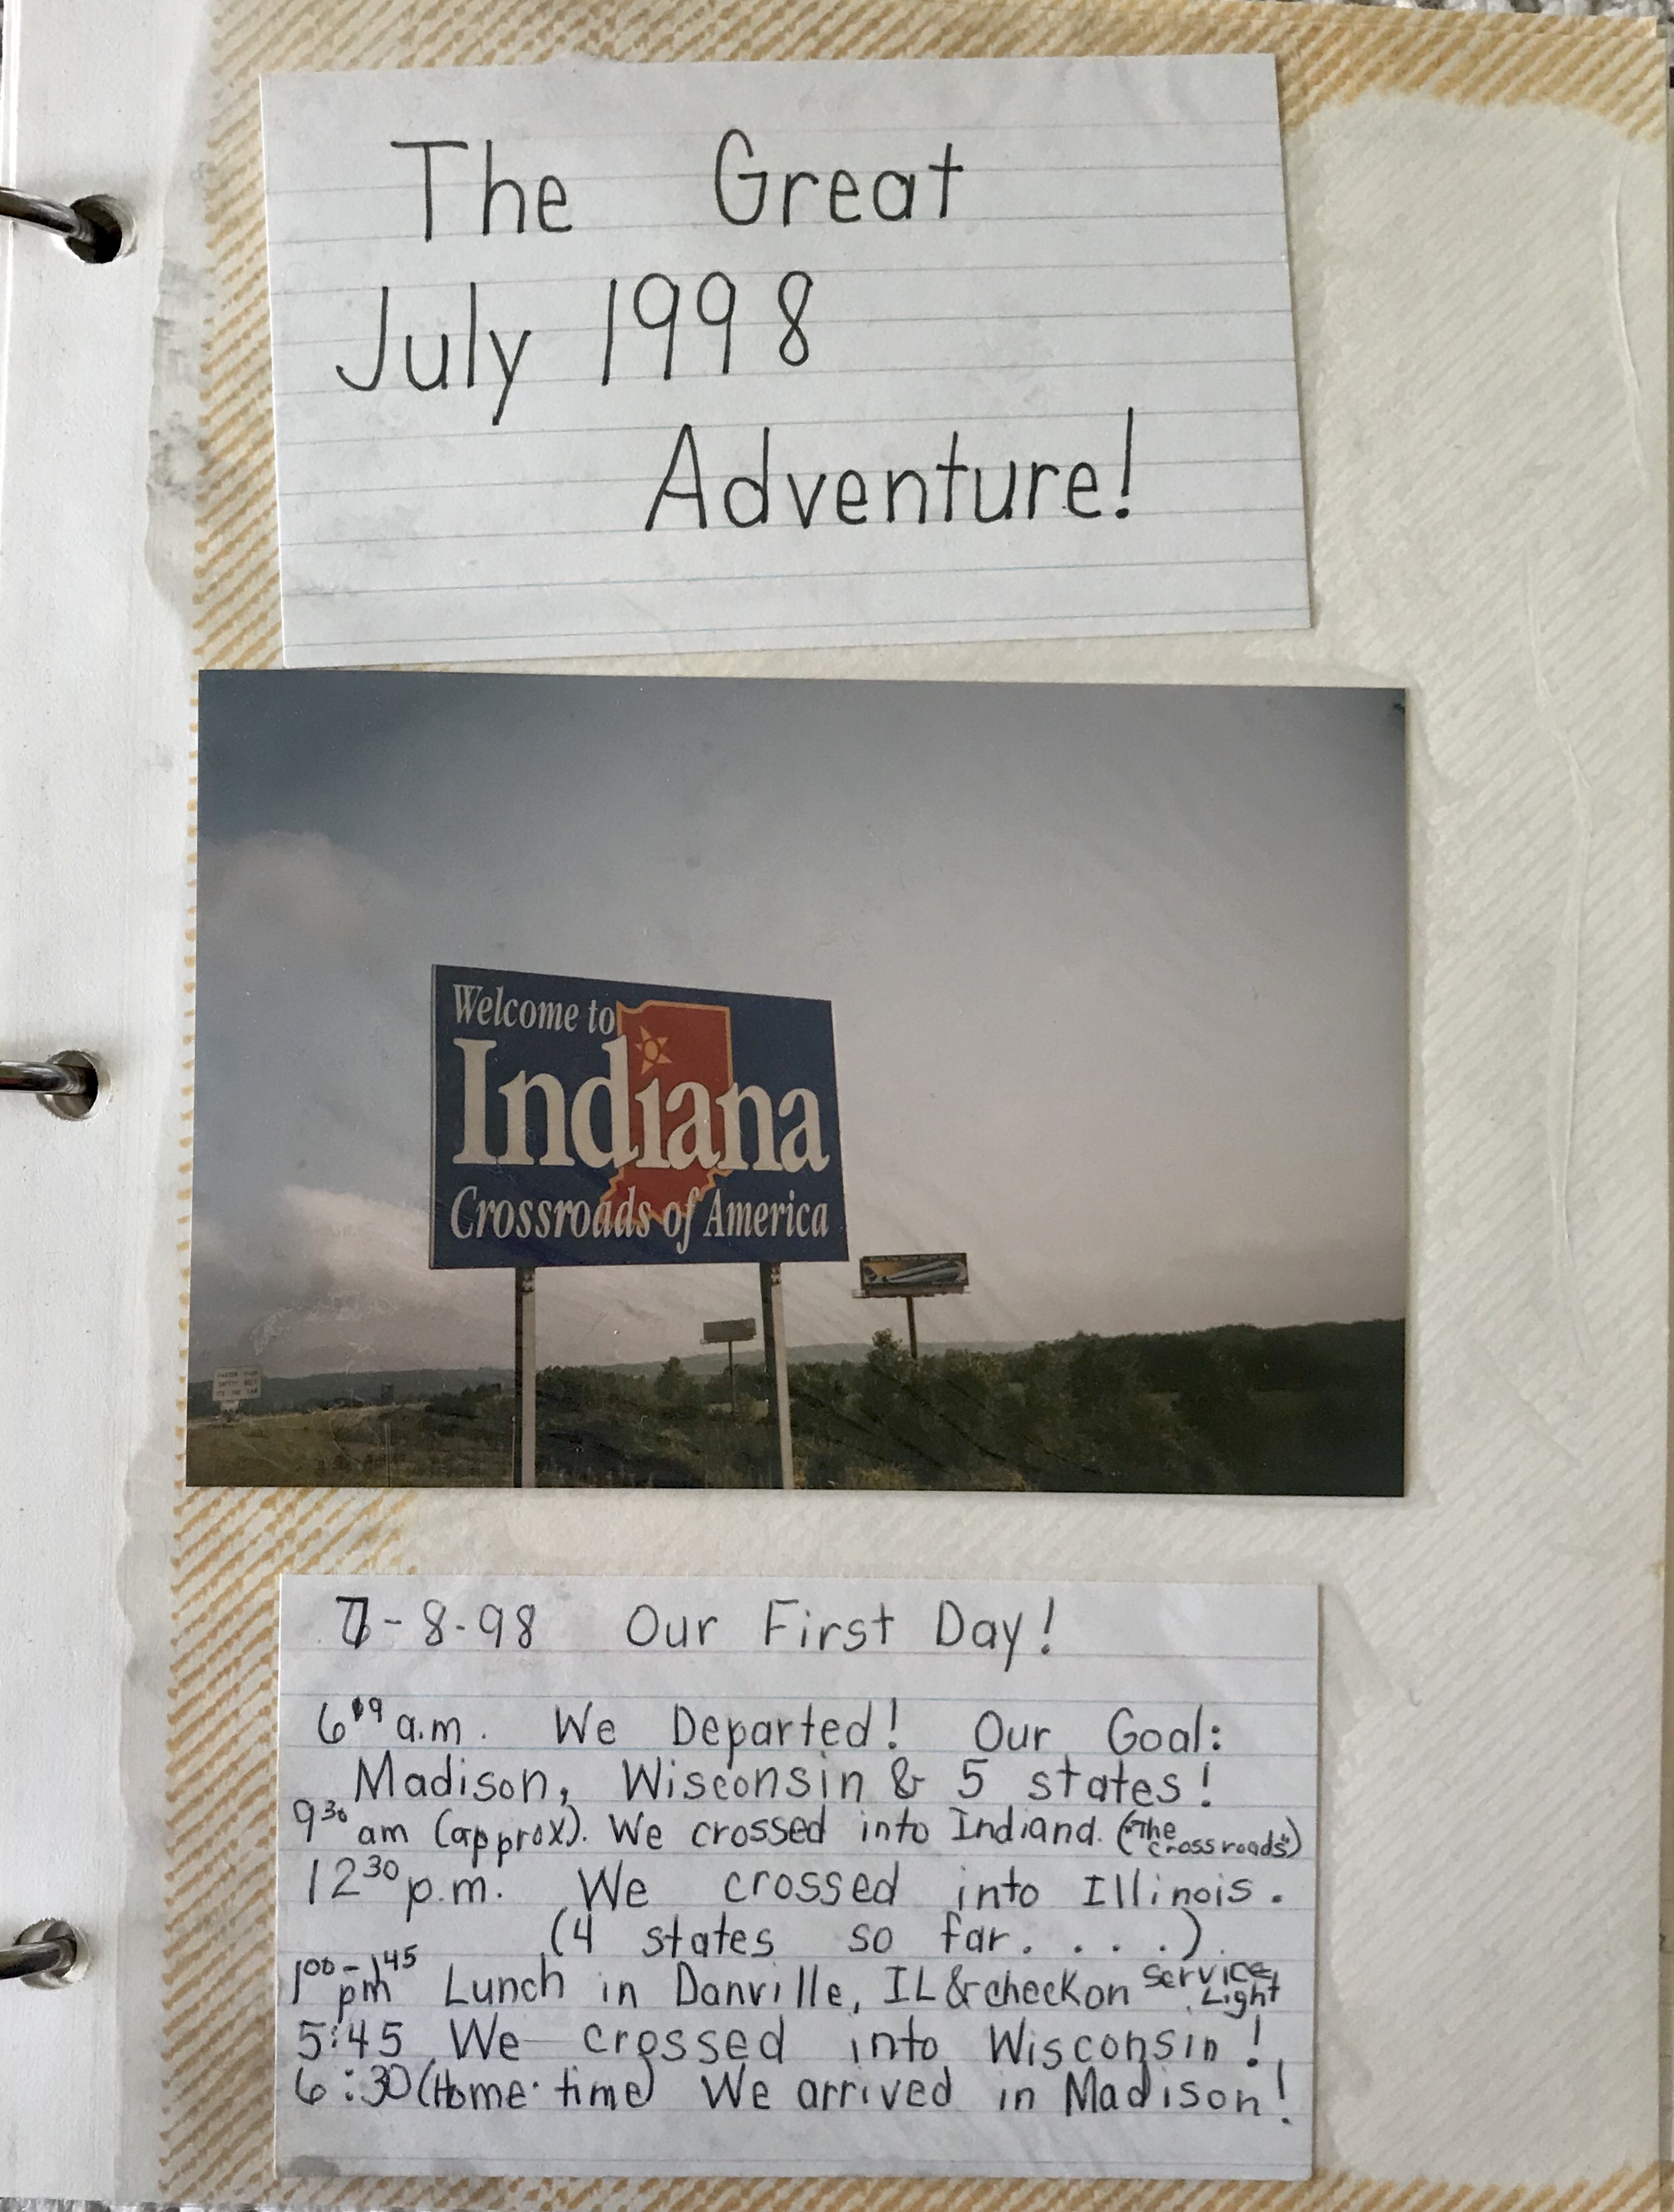 The Great
July 1998
Adventure!
Welcome to
Indiana
Crossroads of America
7-8-98 Our First Day!
6:09 a.m. We Departed! Our Goal:
Madison, Wisconsin & 5 states!
9:30 am (approx). We crossed into Indiana. ("The Crossroads")
12:30 p.m. We crossed into Illinois.
(4 states so far. . . .)
1:00-1:45 pm Lunch in Danville, IL & check on Service Light
5:45 We crossed into Wisconsin!
6:30 (Home time) We arrived in Madison!